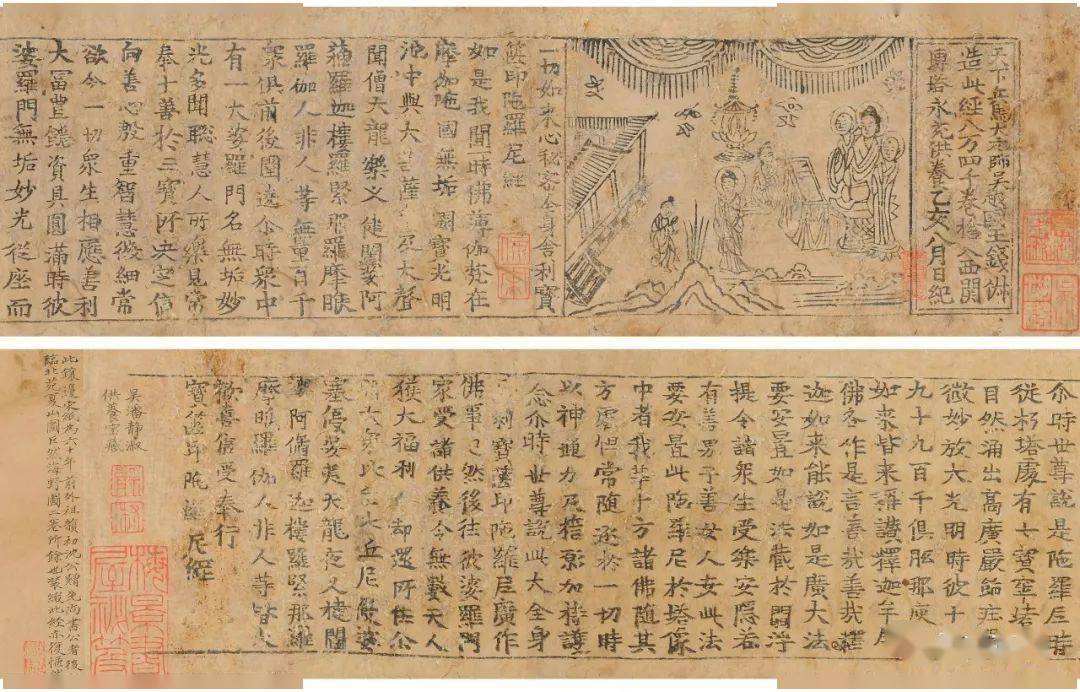 天下兵馬大元帥吳越國王錢俶
造此經八万四千卷捨入西關
塼塔永充供養乙亥八月日紀
一切如來心秘密全身舍利寶
篋印陁羅尼經
如是我聞一時佛薄伽梵在
摩伽陁國無垢園寶光明
池中與大菩薩衆及大聲
聞僧天龍藥叉健闥婆阿
蘓羅迦樓羅緊那羅摩睺
羅伽人非人等無量百千
衆俱前後圍遶尒時衆中
有一大婆羅門名無垢妙
光多聞聡慧人所樂見常
奉十善於三寶所決定信
向善心殷重智慧微細常
欲令一切衆生相應善利
大富豐饒資具圓滿時彼
婆羅門無垢妙光從座而
尒時世尊說是陁羅尼時
從朽塔處有七寶窣堵
自然涌出高廣嚴飾莊
微妙放大光明時彼十
九十九百千俱胝那庾
如來皆來稱讚釋迦牟尼
佛各作是言善哉善哉釋
迦如來能說如是廣大法
要安置如是法藏於閻浮
提令諸衆生受樂安隱若
有善男子善女人安此法
要安置此陁羅尼於塔像
中者我等十方諸佛隨其
方處恒常隨逐於一切時
以神通力及誓願加持護
念尒時世尊說此大全身
舍利寶篋印陁羅尼廣作
佛事已然後往彼婆羅門
家受諸供養令無數天人
獲大福利已却還所住尒
時大衆比丘比丘尼優婆
塞優婆夷天龍夜叉健闥
婆阿脩羅迦樓羅緊那羅
摩睺羅伽人非人等皆大
歡喜信受奉行
寶篋印陁羅尼經
吳潘靜淑
供養寶藏
梅景書
屋祕笈